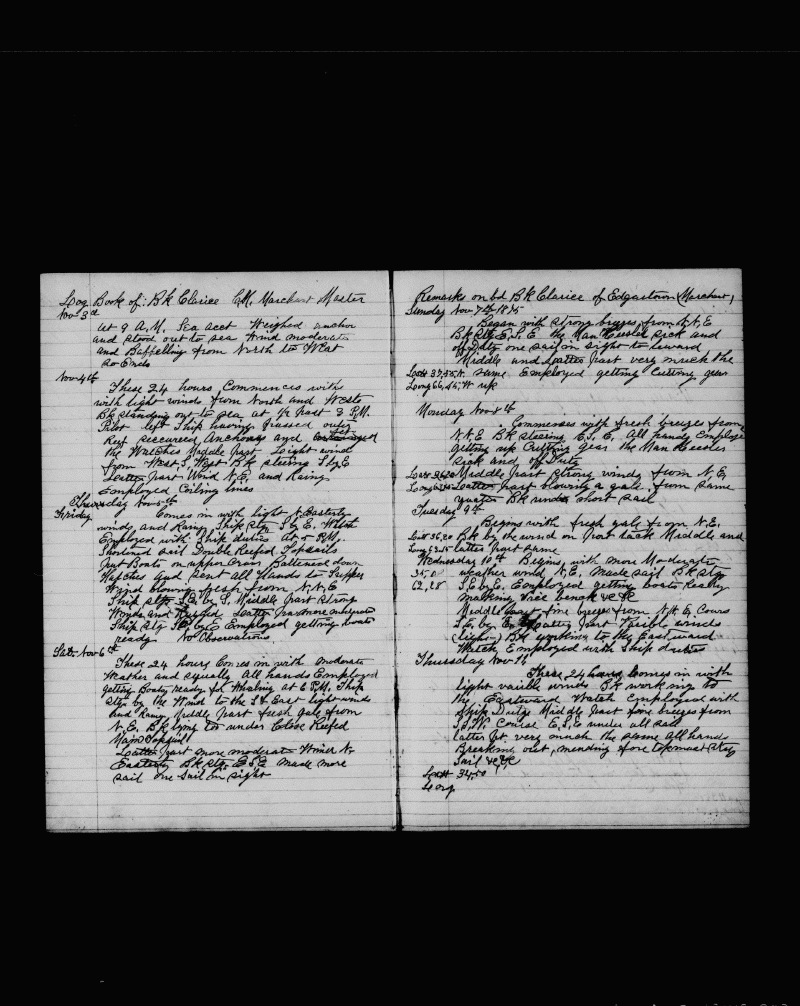 Log Book of: Bk Clarice C.M. Marchant Master
Nov 3rd
At 9 A.M. Sea acct Weighed anchor
and stood out to sea Wind moderate
and Baffelling from North to West
So Ends
Nov 4th
These 24 hours Commences with
with light winds from North and West
Bk standing out to sea at 1/2 past 3 P.M.
Pilot left Ship having passed outer
Reef seccured Anchors and
the Watches Middle part Leight wind
from West S. West Bk steering S by E
Latter part Wind N.E. and Rainy
Employed Coiling lines
Thursday Nov 5th
Friday Comes in with light N. Easterly
winds and Rainy Ship stg S by E. Watch
Employed with Ship duties At 5 P.M.
Shortened sail Double Reefed Topsails
Put Boats on upper Crains Battened down
Hatches and sent All Hands to Supper
Wind blowing fresh from N.N.E
Ship stg S.E. by S. Middle part strong
Winds and Latter part more moderate
Ship stg by E Employed getting boats
ready No Observations
Sat. Nov 6th
These 24 hours Comes in with moderate
Weather and squally All hands Employed
getting Boats ready for Whaling at 6 P.M. Ship
stg by the Wind to the S. East light winds
and Rainy Middle part fresh gale from
N.E. Bk lying to under Close Reefed
Main Topsail
Latter part more moderate Wind N.
Easterly Bk stg E.S.E made more
sail one Sail in sight
Remarks on bd Bk Clarice of Edgartown (Marchant)
Sunday Nov 7th 1875
Began with strong breezes from N.N.E
Bk Stg E.S.E. the Man Keesler sick and
off duty one sail in sight to leward
Middle and Latter part very much the
Latt 37,55, N. same Employed getting Cutting gear
Long 66,45, W up
Monday Nov 8th
Commenses with fresh breezes from
N.N.E Bk steering E.S.E. All hands Employe
getting up Cutting gear the Man Keesler
Sick and off Duty
Latt 36,20 Middle part strong winds from N.E.
Long Latter part blowing a gale from same
quater Bk under short sail
Tuesday 9th
Begins with fresh gale from N.E.
Latt 36,20 Bk by the wind on Port tack Middle and
Long 63,15 latter part same
Wednesday 10th Begins with more Moderate
35,0 weather wind N.E. made sail Bk stg
62,28 S.E. by E. Employed getting boats Ready
making Vice bench &c &c
Middle part fine breezes from N.N.E. Cours
S.E. by E. Latter part Varible winds
(light) Bk working to the Eastward
Watch Employed with Ship duties
Thursday Nov 11
These 24 hours Comes in with
light varible winds Bk working to
the Eastward Watch Employed with
Ship Dutys Middle part fine breezes from
S.W. Course E.S.E under all sail
latter Pt. very much the same All hands
Breaking out, mending fore topmast stay
Sail &c &c
Latt 34,50
Long